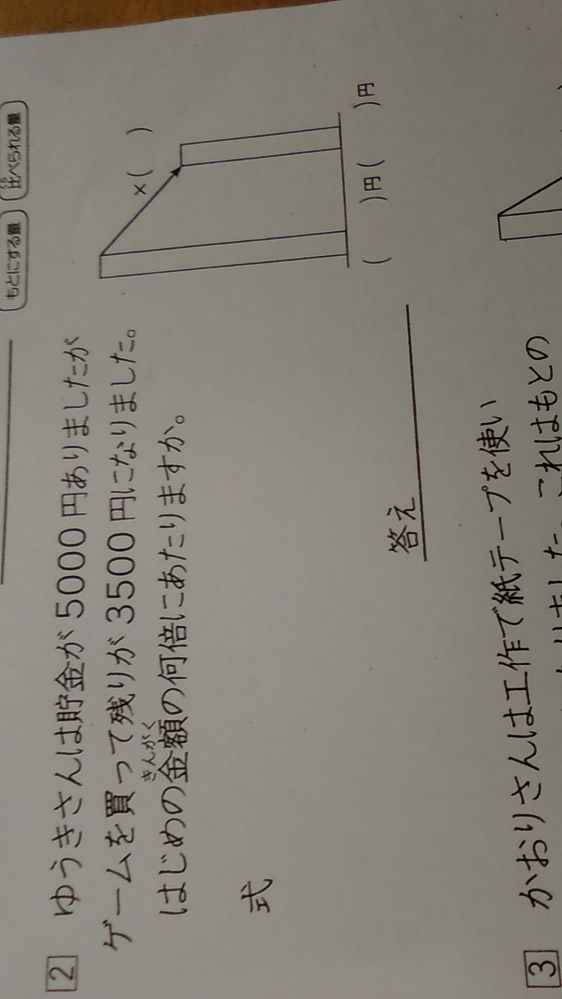 もとにする量 比べられる量
2 ゆうきさんは貯金が5000円ありましたが
ゲームを買って残りが3500円になりました。
きんがく
はじめの金額の何倍にあたりますか。
×( )
( )円 ( )円
式
答え
3 かおりさんは工作で紙テープを使い
ました。これはもとの